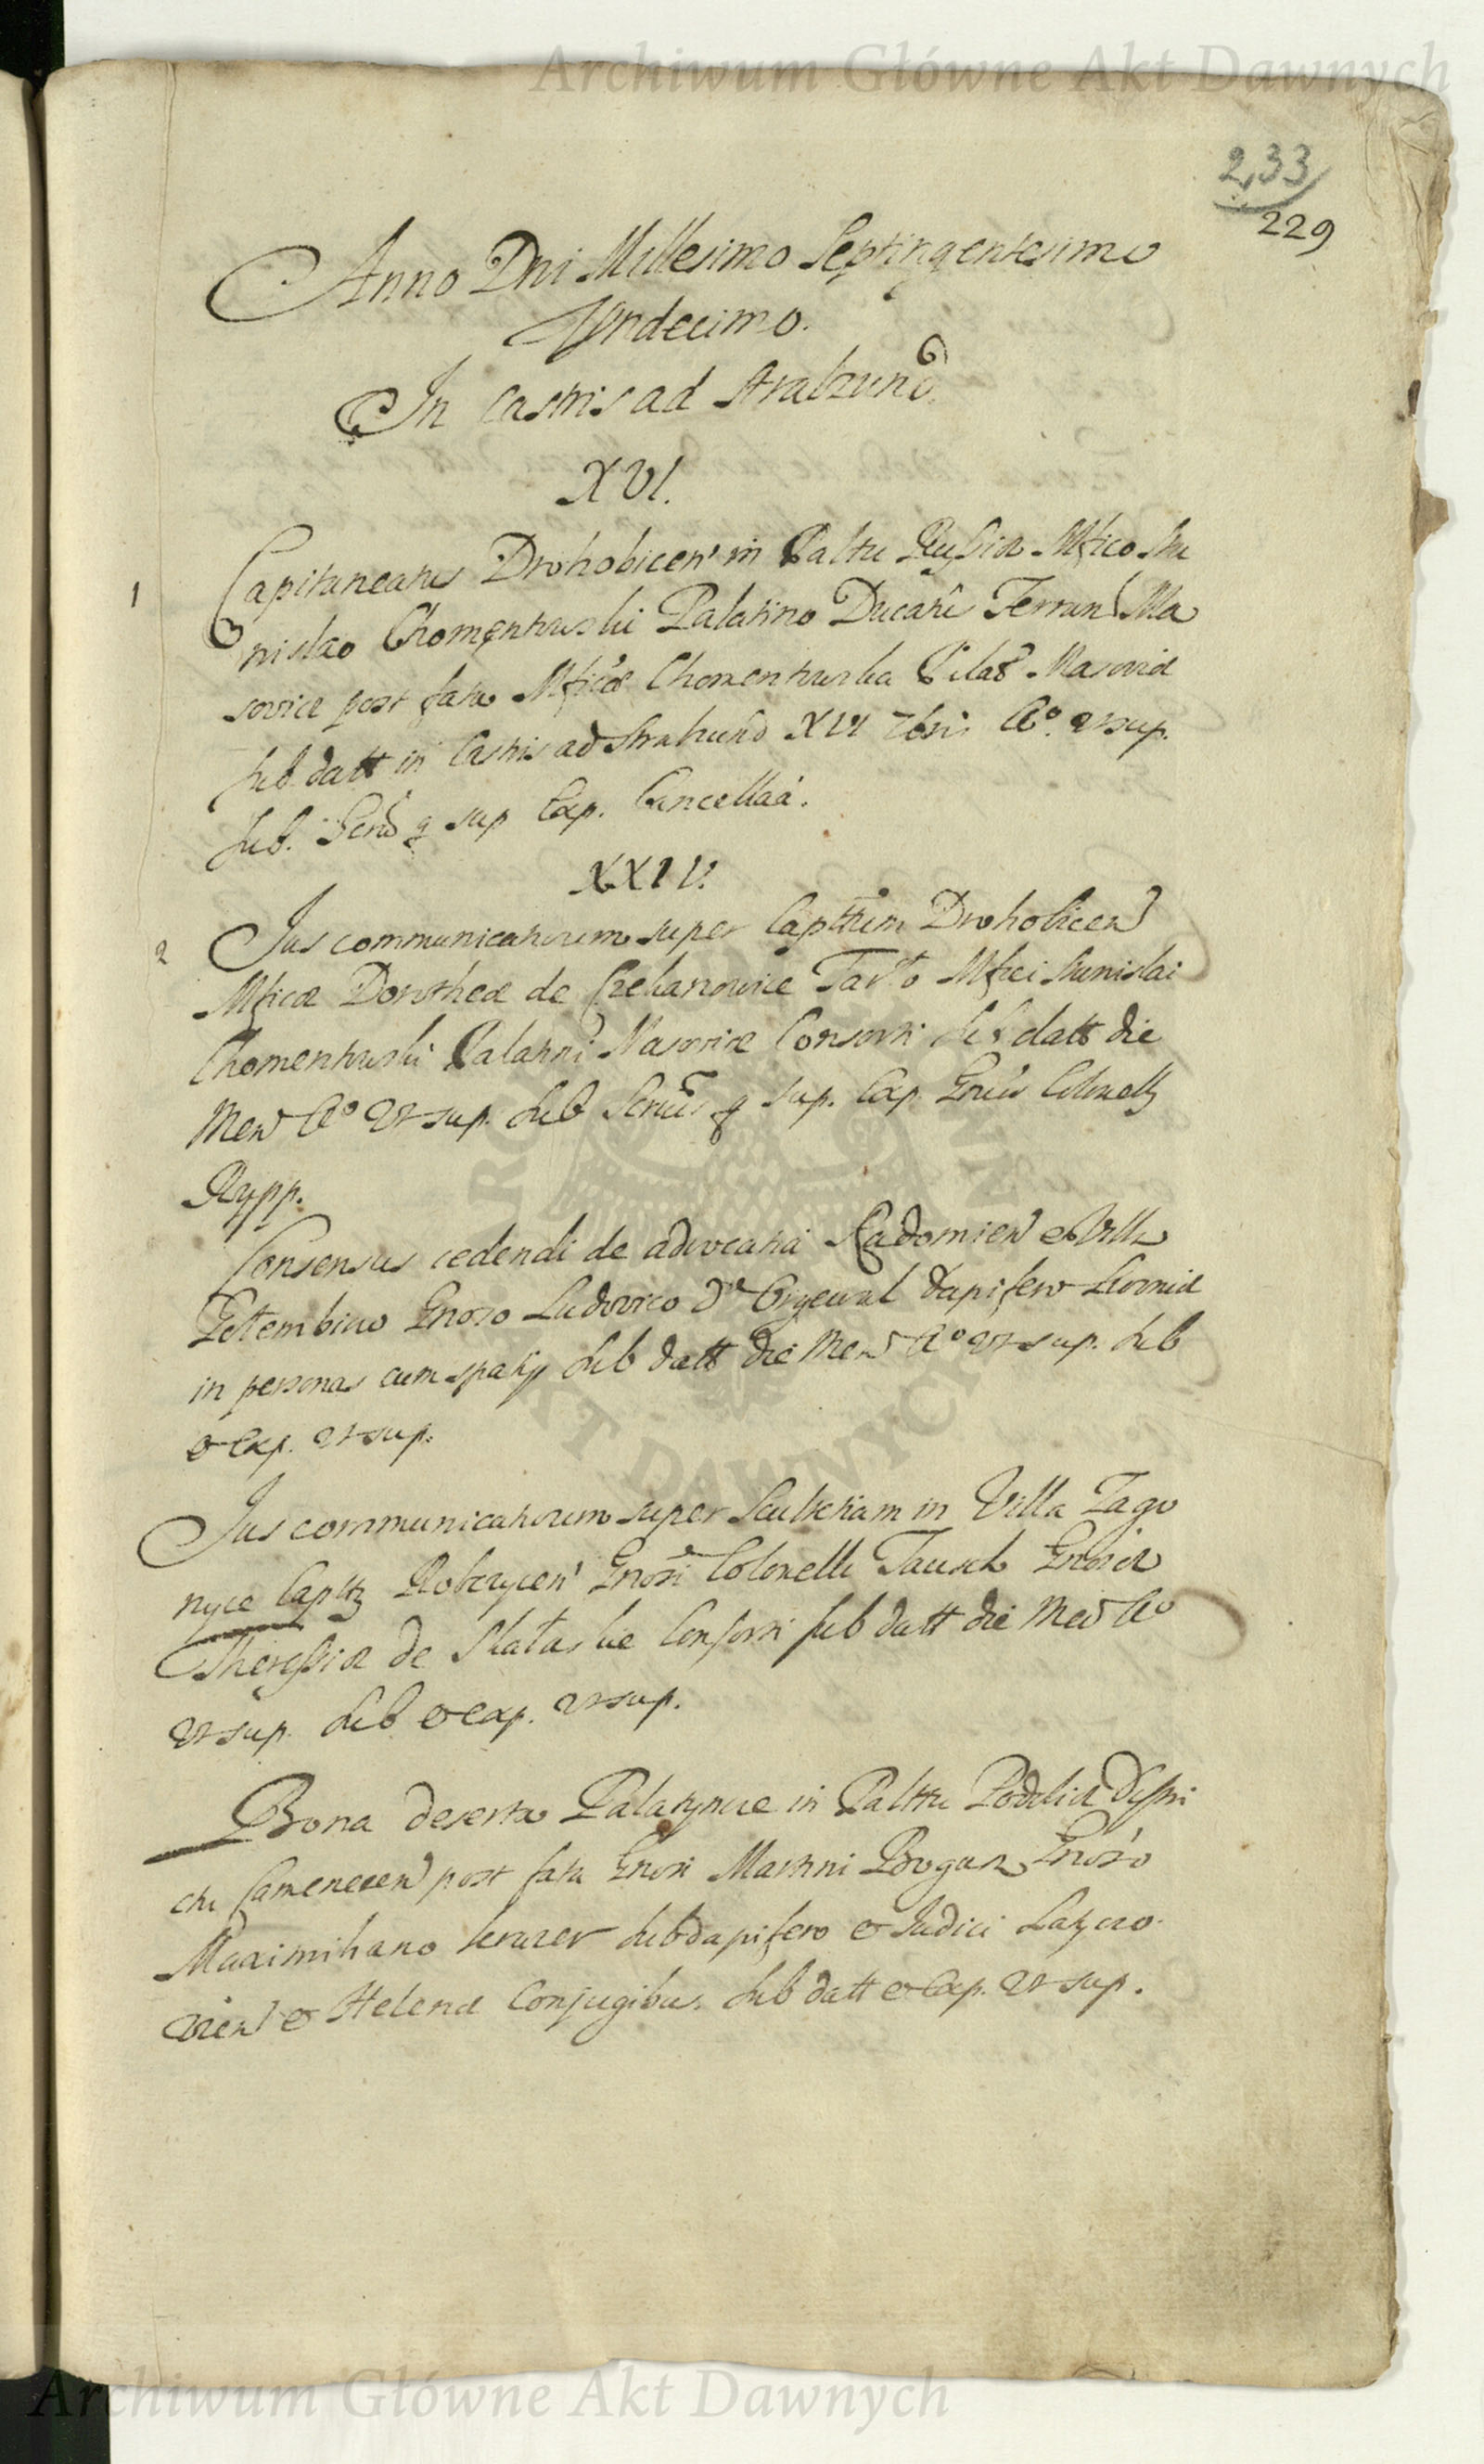 Archiwum Główne Akt Dawnych
233
229
Anno Dni Millesimo Septingentesimo
Undecimo.
In Castris ad Stralzund
XVI.
1 Capitaneatus Drohobicen' in Paltu Russiæ Mfico Sta
nislao Chomentowski Palatino Ducatu Terrarum Ma
soviæ post fata Mficæ Chomentowska Masoviæ
sub datt in Castris ad Stralsund XVI 7bris Ao. ut sup.
sub. sup Exp. Cancellaa.
XXIV.
2 Jus communicativum super Capttum Drohobicen
Mficæ Dorotheæ de Czekanowice Tarło Mfici Stanislai
Chomentowski Palatini Masoviæ Consorti sub datt die
Men Ao ut sup. sub sup. Exp. Colonelli
Rypp.
Consensus cedendi de advocatia Radomien et Villa
Gnoso Ludovico Dapifero Livoniæ
in personas cum spatijs sub datt die Men Ao ut sup. sub
et Exp. ut sup.
Jus communicativum super Scultetiam in Villa Zago
nyce Capttus Gnosi Colonelli Tausch Gnosæ
Theressiæ de Consorti sub datt die Men Ao
ut sup. sub et Exp. ut sup.
Bona deserta Palatynce in Palttu Podoliæ Distri
ctu Camenecen post fata Gnosi Martini Bogusz Gnoso
Maximiliano subdapifero et Judici Latyczo
vien et Helenæ Conjugibus. sub datt et Exp. ut sup.
ARCHIWUM GŁÓWNE AKT DAWNYCH
Archiwum Główne Akt Dawnych